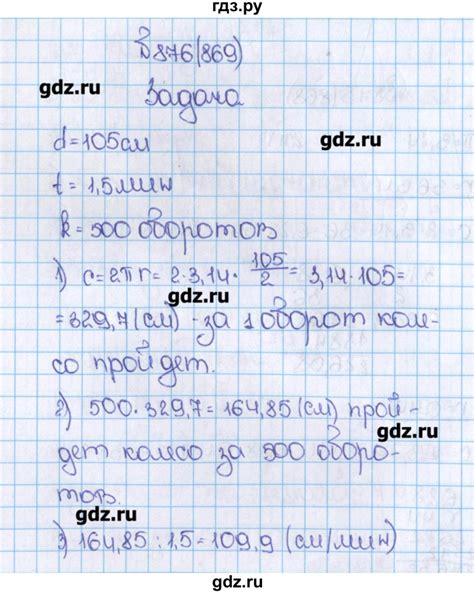 гдз.ру
876(869)
gdz.ru
Задача
gdz.ru
d=105см
t=1,5мин
gdz.ru
k=500 оборотов
1) c=2πr=2·3,14·105/2=3,14·105=
gdz.ru
=329,7(см) - за 1 оборот коле-
со пройдет.
2) 500·329,7=164,85(см) прой-
gdz.ru
дет колесо за 500 оборо-
тов.
gdz.ru
3) 164,85:1,5=109,9(см/мин)
gdz.ru